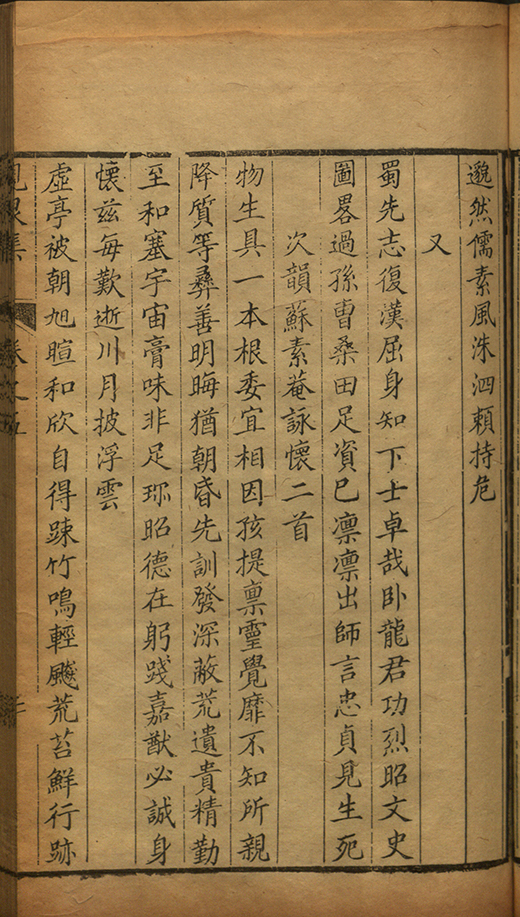 邈然儒素風洙泗頼持危
又
蜀先志復漢屈身知下士卓哉卧龍君功烈昭文史
圖畧過孫曹桑田足資巳凛凛出師言忠貞見生死
次韻蘇素菴詠懷二首
物生具一本根委宜相因孩提禀靈覺靡不知所親
降質等彞善明晦猶朝昏先訓發深蔽荒遺貴精勤
至和塞宇宙膏味非足珎昭德在躬踐嘉猷必誠身
懷兹每歎逝川月披浮雲
虛亭被朝旭暄和欣自得踈竹鳴輕飈荒苔鮮行跡
集 卷之五